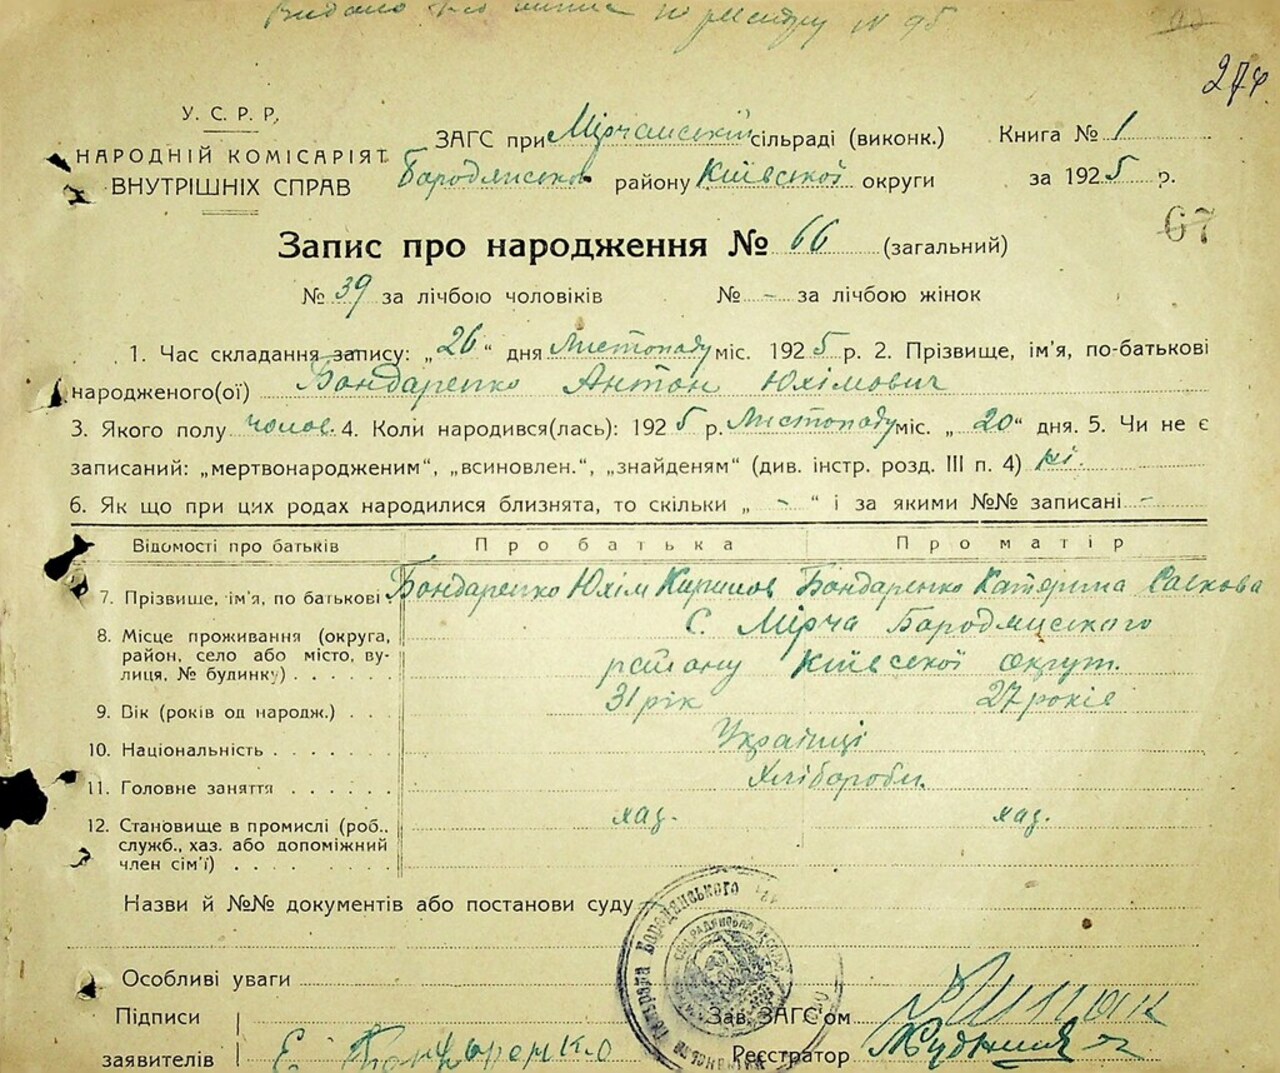 Видано по реєстру № 95
274
У. С. Р. Р.
НАРОДНІЙ КОМІСАРІЯТ
ВНУТРІШНІХ СПРАВ
ЗАГС при Мірчанській сільраді (виконк.)
Бородянськ. району Київської округи
Книга № 1
за 1925 р.
67
Запис про народження № 66 (загальний)
№ 39 за лічбою чоловіків № - за лічбою жінок
1. Час складання запису: „26“ дня Листопаду міс. 1925 р. 2. Прізвище, ім'я, по-батькові
народженого(ої) Бондаренко Антон Юхімович
3. Якого полу чолов. 4. Коли народився(лась): 1925 р. Листопаду міс. „20“ дня. 5. Чи не є
записаний: „мертвонародженим“, „всиновлен.“, „знайденям“ (див. інстр. розд. III п. 4) ні.
6. Як що при цих родах народилися близнята, то скільки „ - “ і за якими №№ записані -
Відомості про батьків Про батька Про матір
7. Прізвище, ім'я, по батькові . Бондаренко Юхім Кирилов Бондаренко Катерина Саскова
8. Місце проживання (округа, район, село або місто, вулиця, № будинку) . . . . . С. Мірча Бородянського
району Київської округ.
9. Вік (років од народж.) . . . 31 рік 27 років
10. Національність . . . . . . . Українці
11. Головне заняття . . . . . . Хлібороби.
12. Становище в промислі (роб., хаз. хаз.
служб., хаз. або допоміжний
член сім'ї) . . . . . . . . .
Назви й №№ документів або постанови суду
Бородянського
Особливі уваги
Підписи
заявителів Є Бондаренко
Зав. ЗАГС'ом
Реєстратор